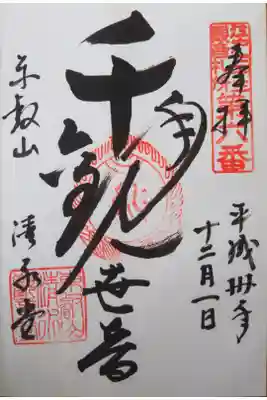 奉拝
平成卅年
十二月一日
千手観世音
東叡山
清水堂